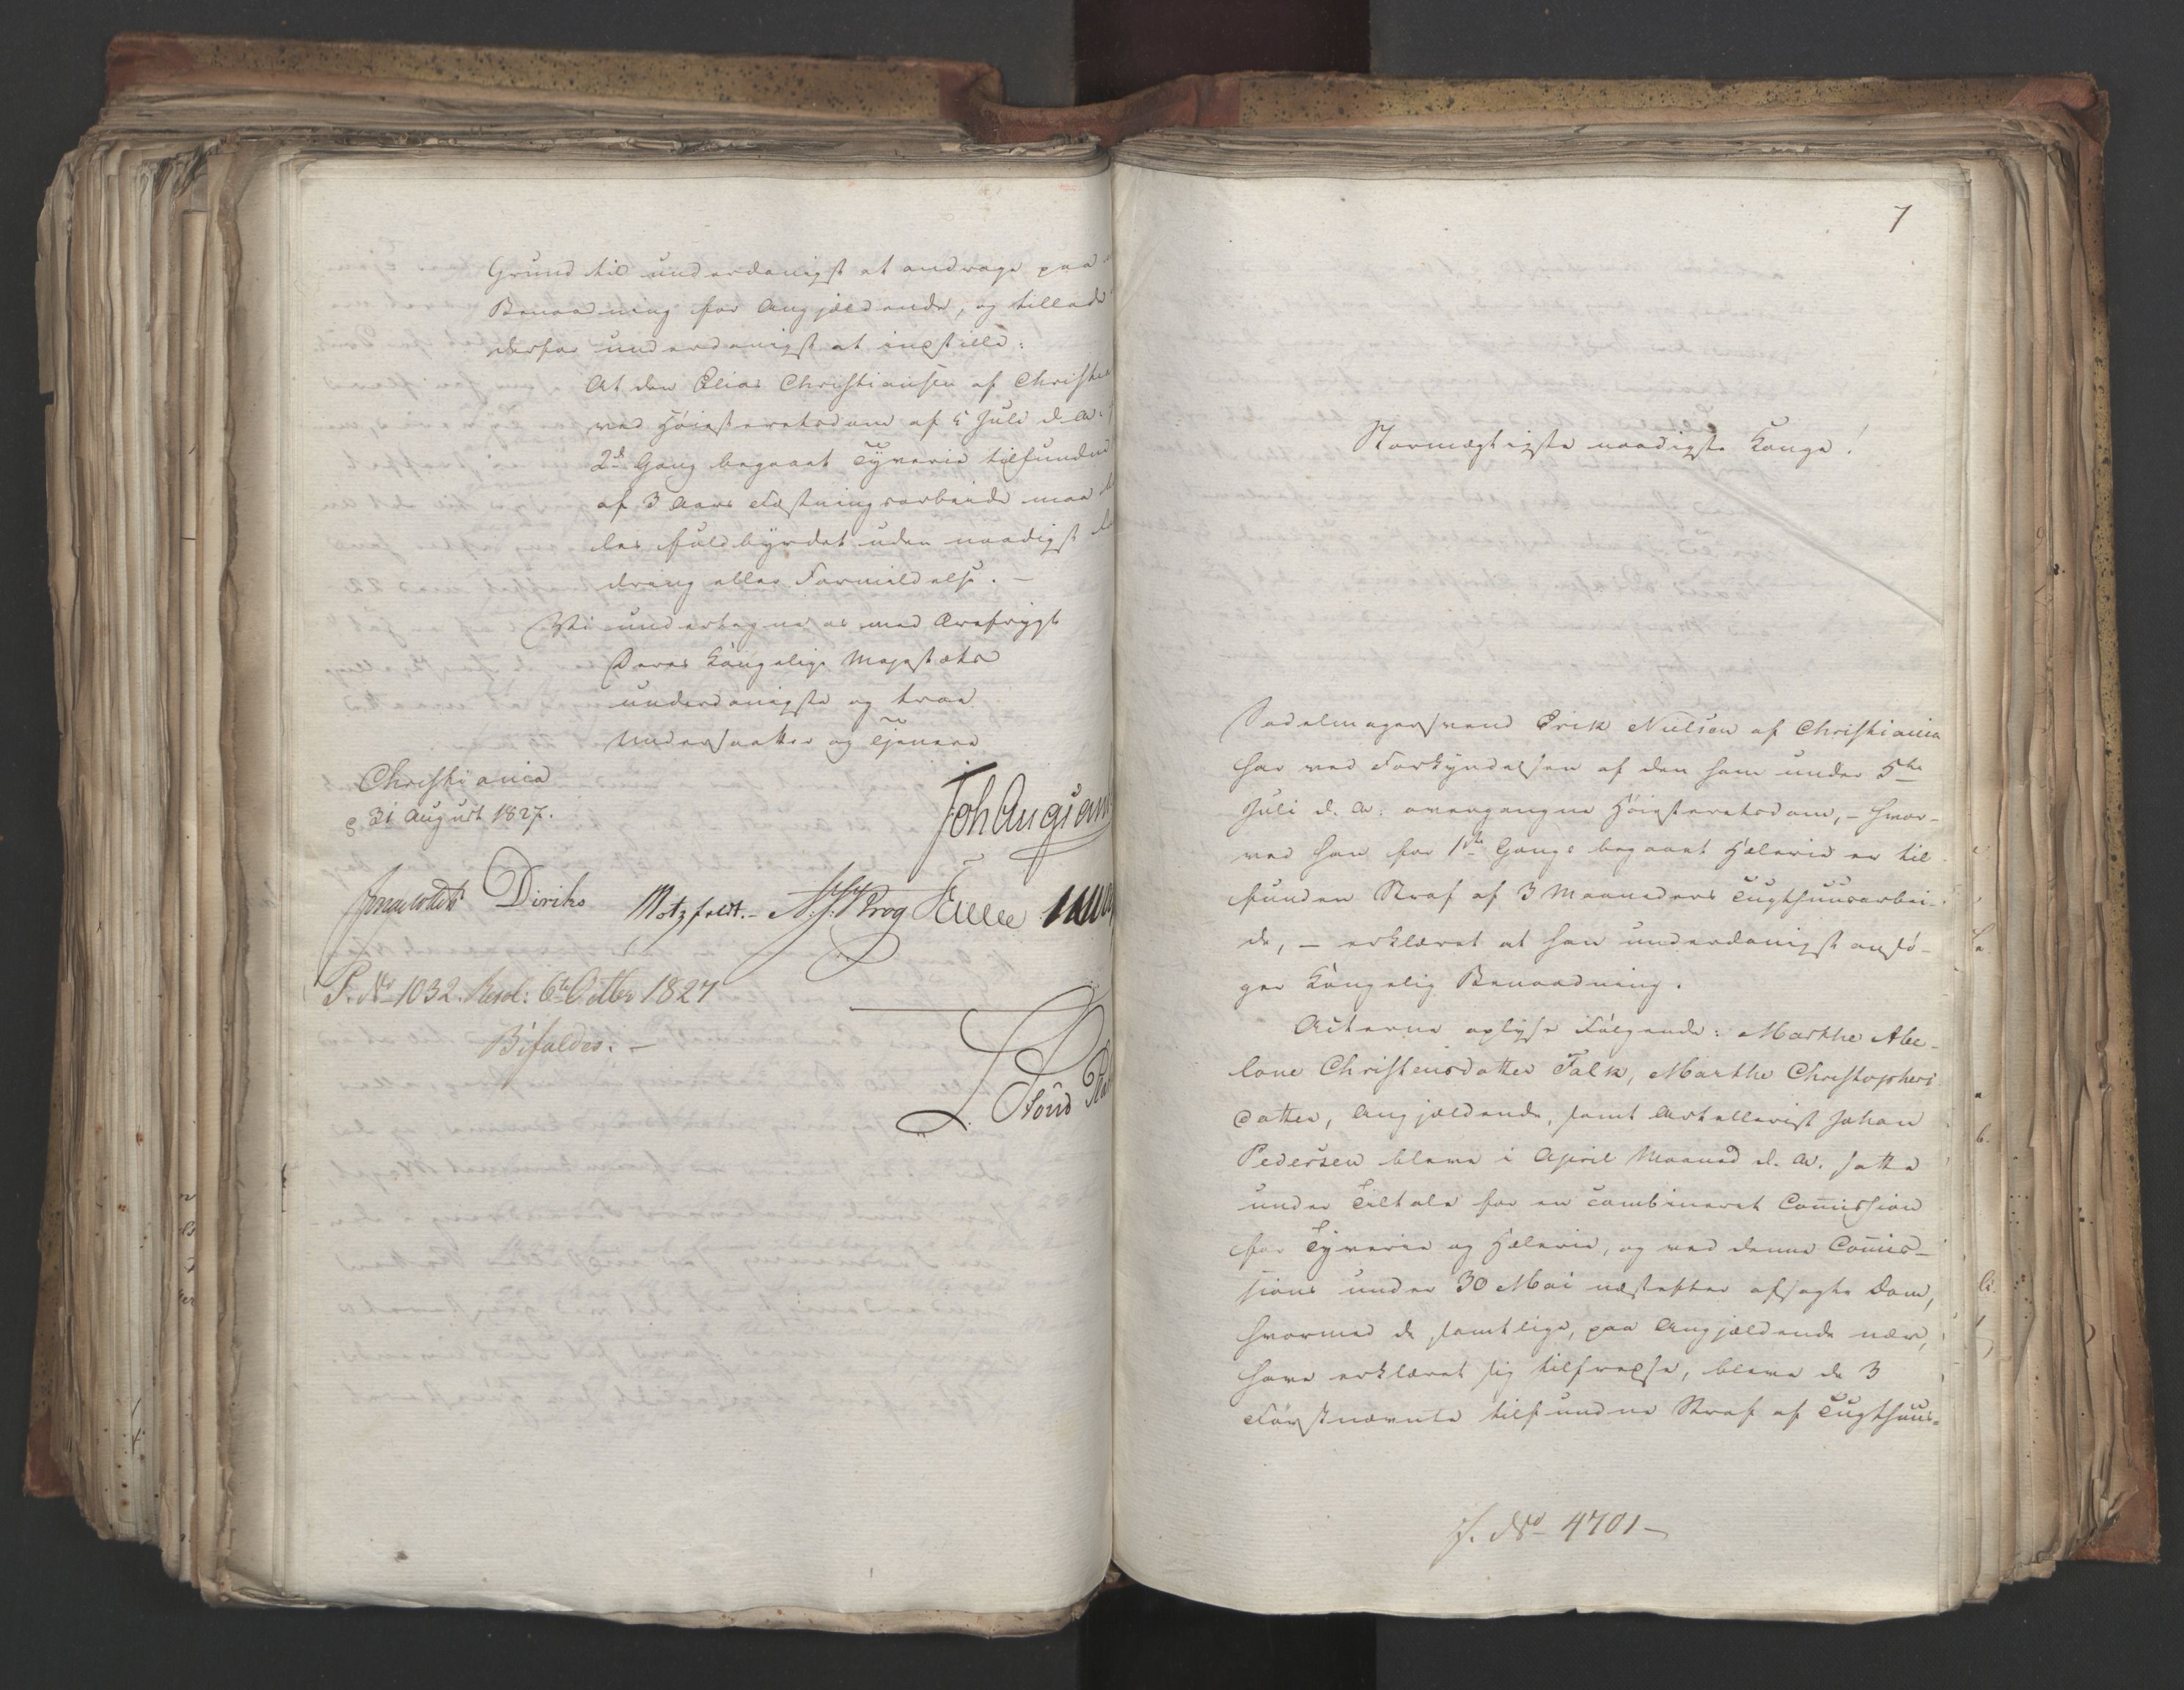 Grund til underdanigst at andrage paa
Benaadning for Angjældende, og tillade
derfor underdanigst at indstille:
At den Elias Christiansen af Christia
ved Høiesteretsdom af 5 Juli d. A.
2den Gang begaaet Tyverie tilfundne
af 3 Aars Fæstningsarbeide maa
des fuldbyrdet uden naadigst
dring eller Formildelse. –
Vi undertegne os med Ærefrygt
Deres Kongelige Majestæts
underdanigste og troe
Undersaatter og Tjenere
Christiania
31 August 1827.
Diriks Motzfeldt.- Krog
P. No 1032. Resol: 6te Octbr 1827
Bifaldes. –
7
Stormægtigste naadigste Konge!
Sadelmagersvend Erik Nielsen af Christiania
har ved Forkyndelsen af den ham under 5te
Juli d. A. overgangne Høiesteretsdom, – hvor-
ved han for 1ste Gang begaaet Hælerie er til
funden Straf af 3 Maaneders Tugthuusarbei-
de, – erklæret at han underdanigst ansø-
ger Kongelig Benaadning.
Acterne oplyse Følgende: Marthe Abe-
lone Christensdatter Falk, Marthe Christophers
datter, Angjældende, samt Artellerist Johan
Pedersen bleve i April Maaned d. A. satte
under Tiltale for en combineret Com̅ission
for Tyverie og Hælerie, og ved denne Com̅is-
sions under 30 Mai næstefter afsagte Dom,
hvormed de samtlige, paa Angjældende nær,
have erklæret sig tilfredse, bleve de 3
Førstnævnte tilfundne Straf af Tugthuus-
J. No 4701 –